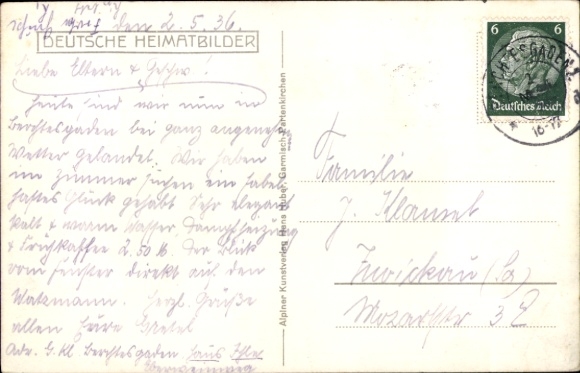 den 2.5.36.
DEUTSCHE HEIMATBILDER
Liebe Eltern & Geschw!
Heute sind wir nun in
Berchtesgaden bei ganz angenehm
Wetter gelandet. Wir haben
im Zimmer suchen ein fabel
haftes Glück gehabt Sehr elegant
kalt & warm Wasser, Dampfheizung
& Frühkaffee 2.50 M. Der Blick
vom Fenster direkt auf den
Watzmann. Herzl. Grüße
allen Eure Gretel
Adr. G. Kl Berchtesgaden, Haus
Alpiner Kunstverlag Hans Huber, Garmisch-Partenkirchen
6 6
Deutsches Reich
BERCHTESGADEN
Familie
J. Klausel
Zwickau (Sa)
Mozartstr 32